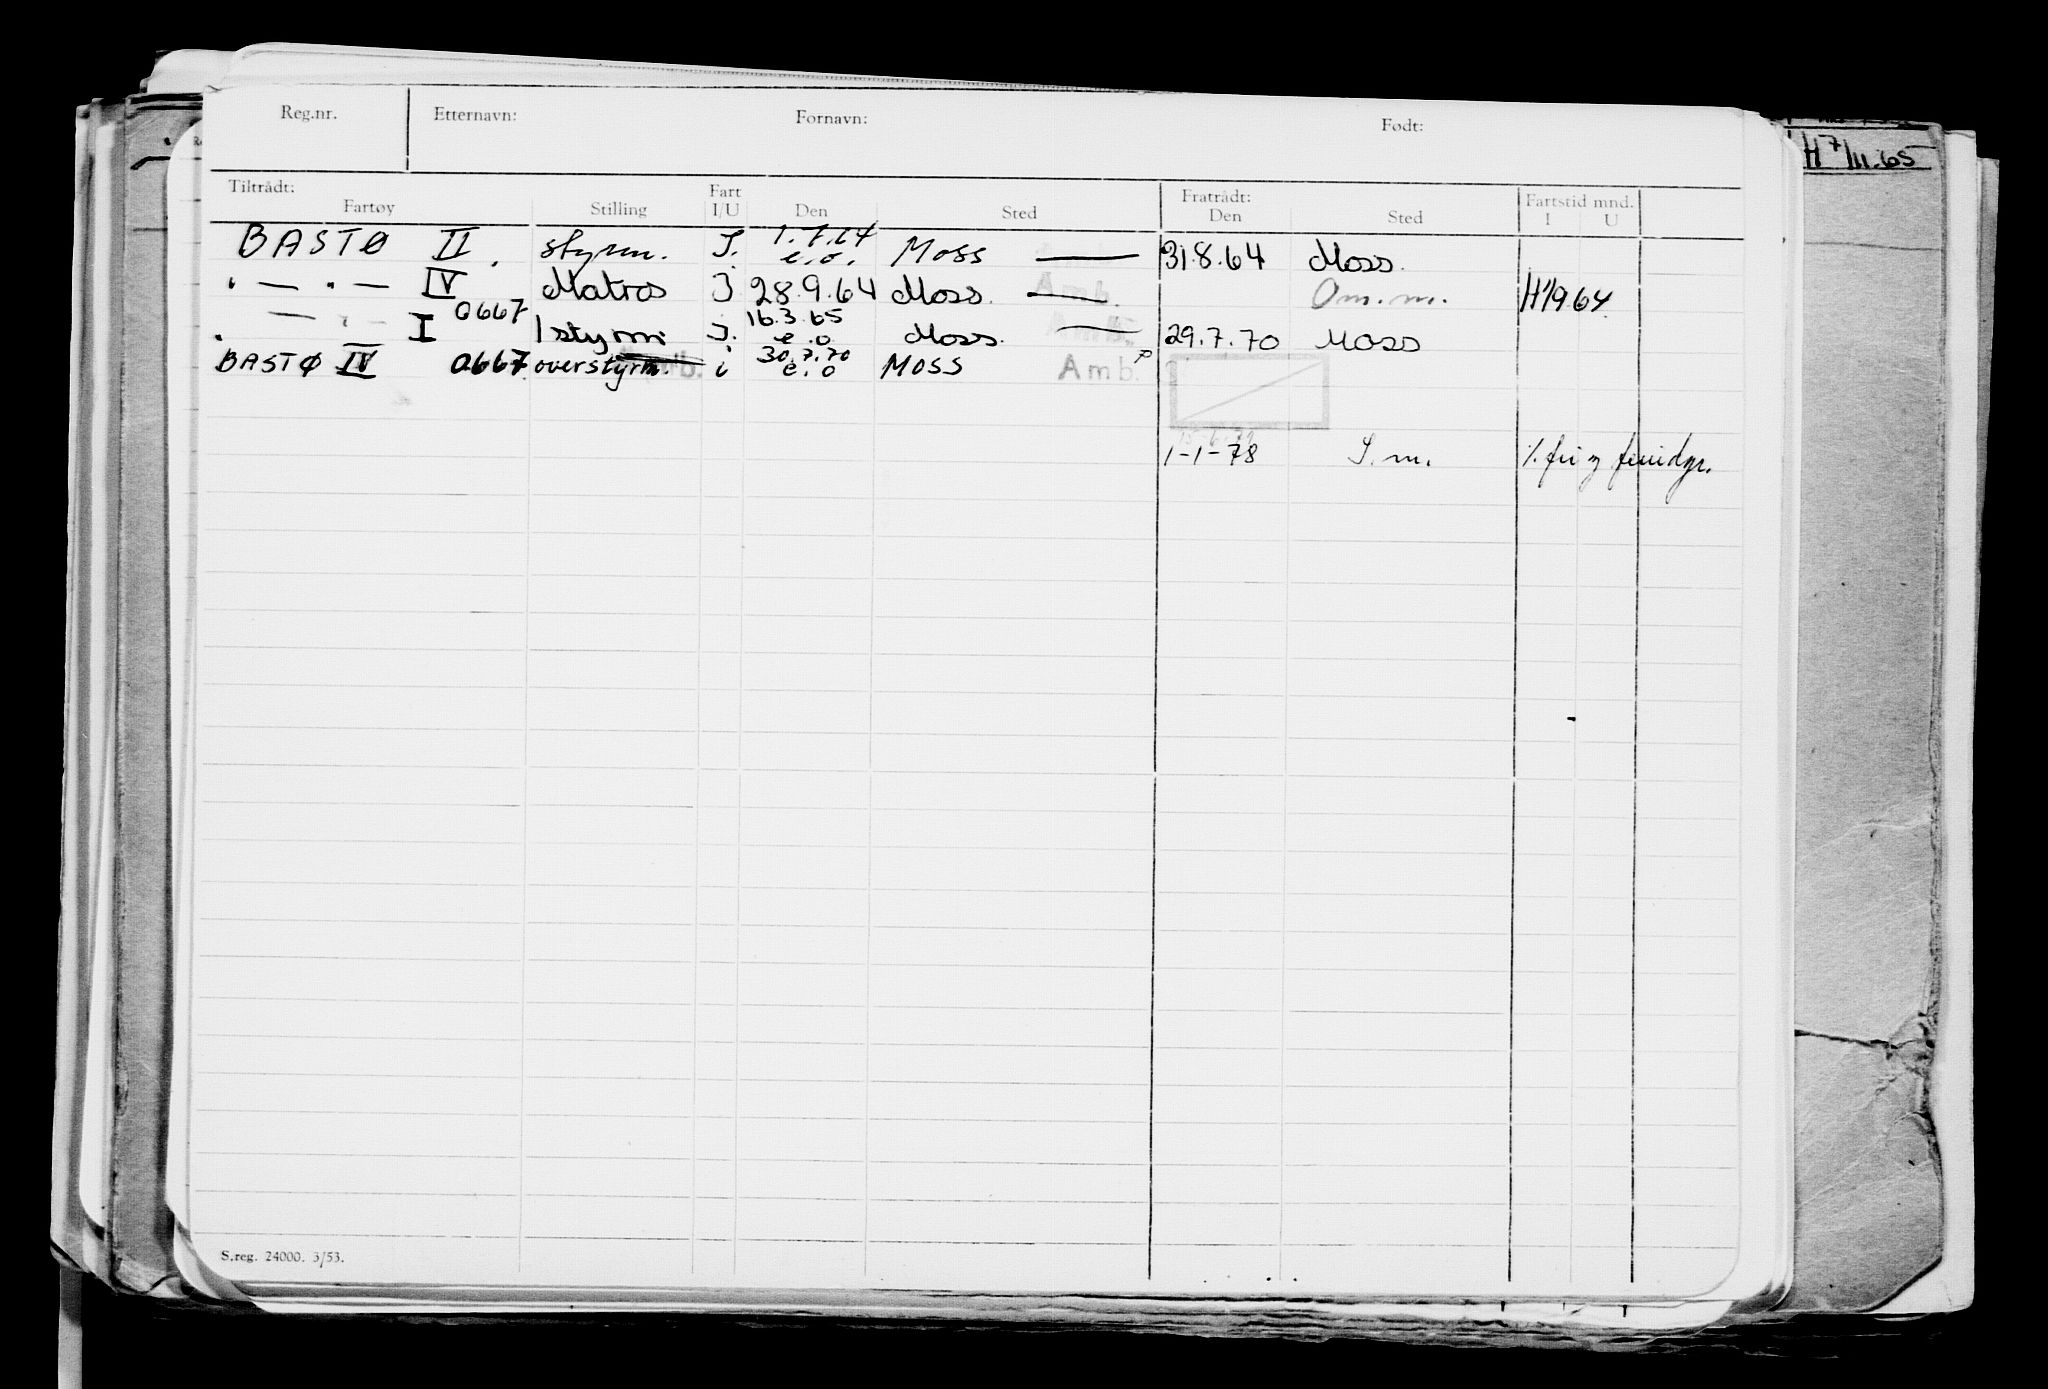 Reg.nr. Etternavn: Fornavn: Født:
H 7/11.65
Tiltrådt: Fart Fratrådt: Fartstid mnd.
Fartøy Stilling I/U Den Sted Den Sted I U
BASTØ II. styrm. I. 1.7.64 e.o. Moss — 31.8.64 Moss.
" — " — IV Matros I 28.9.64 Moss. — Om.m. H 1/9.64
0667
— " — I 1 styrm. I. 16.3.65 e.o Moss. — 29.7.70 Moss
BASTØ IV 0667 overstyrm. i 30.7.70 e.o MOSS Amb.
1-1-78 S.m.
S.reg. 24000. 3/53.